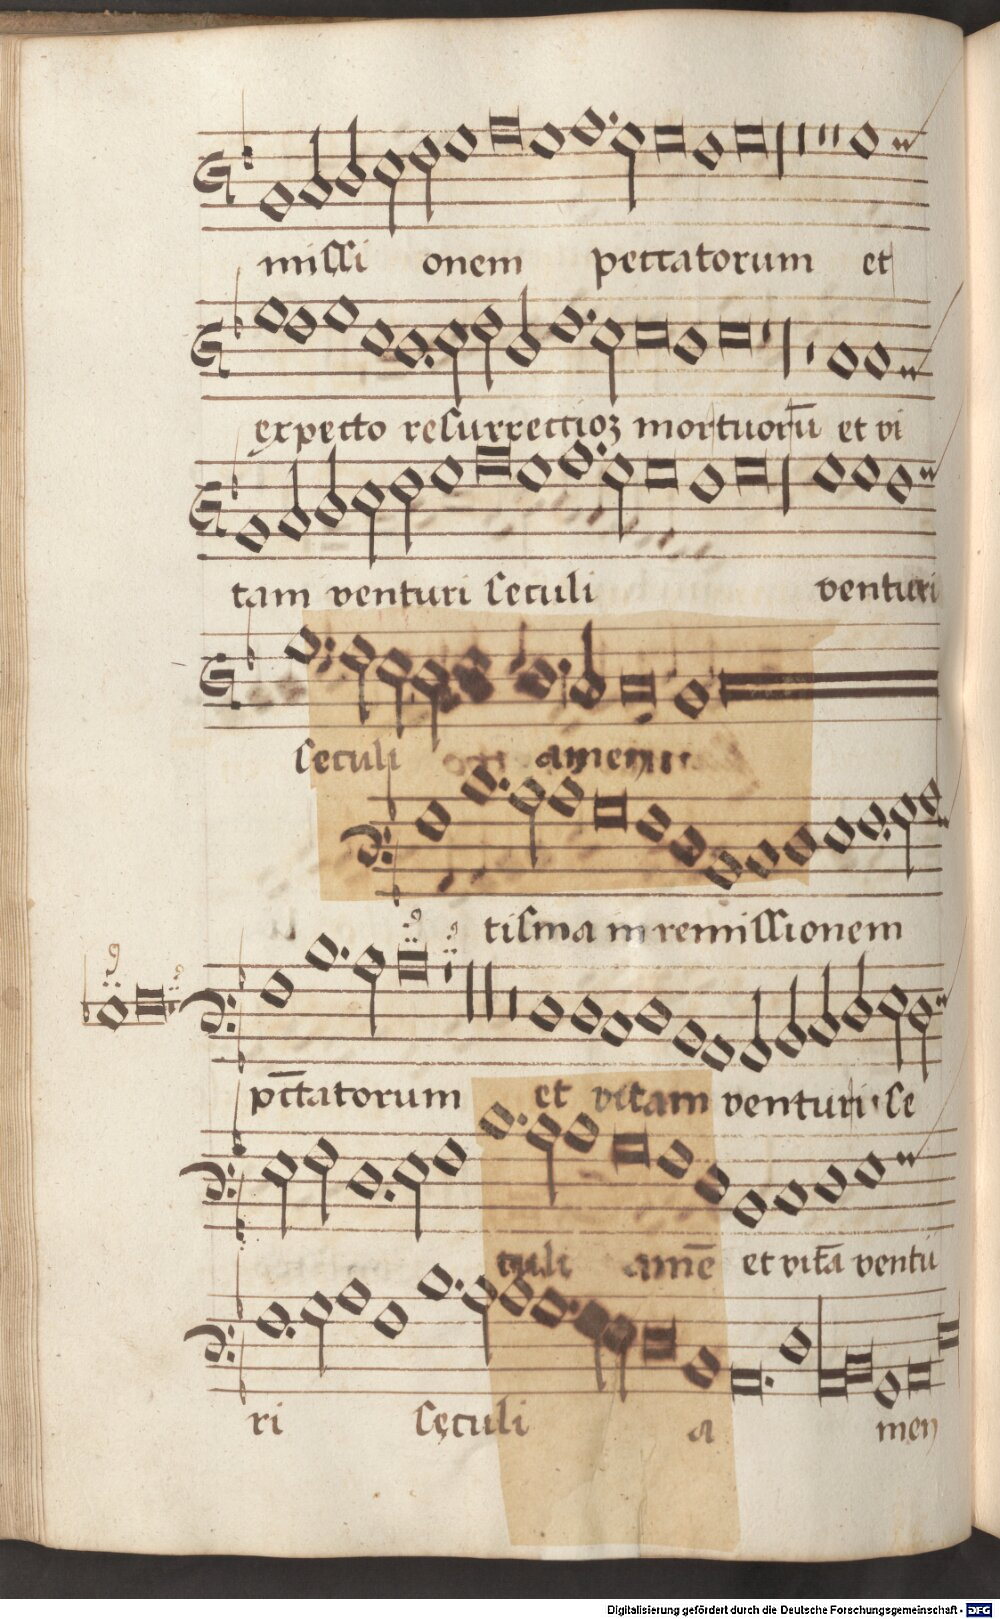 missi onem peccatorum et
expecto resurrectioꝫ mortuorū et vi
tam venturi seculi venturi
seculi amen
tisma in remissionem
pctatorum et vitam venturi se
culi amē et vitā ventu
ri seculi a men
Digitalisierung gefördert durch die Deutsche Forschungsgemeinschaft - DFG